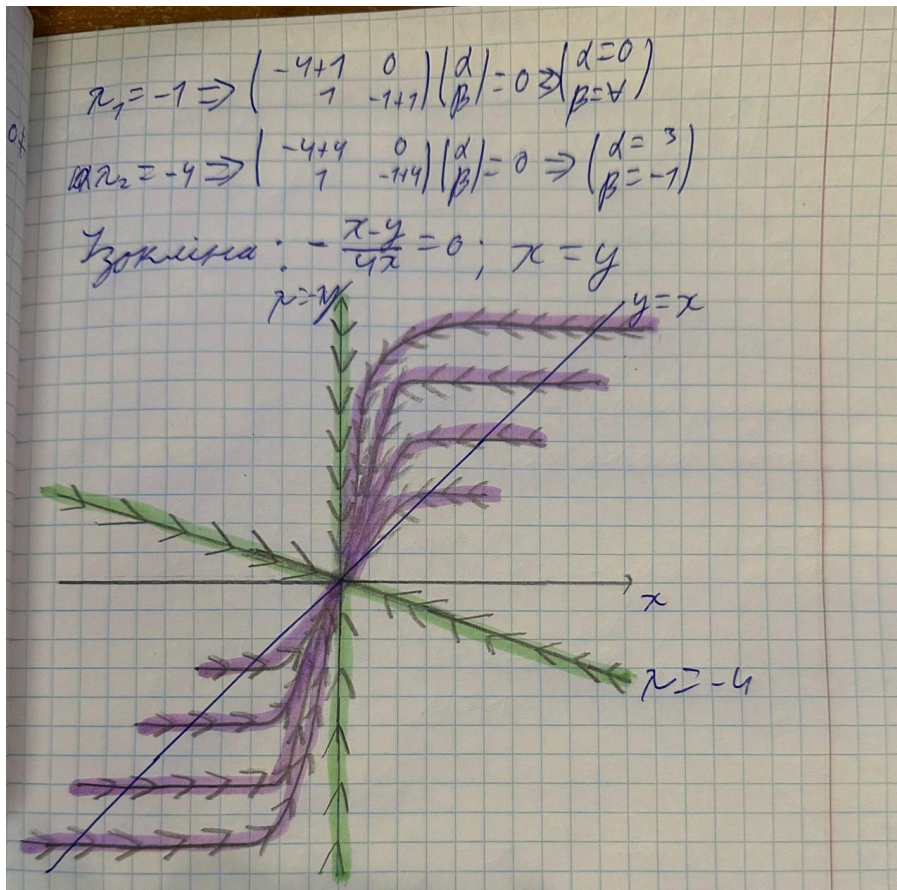 λ₁ = -1 ⇒ (-4+1 0; 1 -1+1)(α; β) = 0 ⇒ (α=0; β=∀)
λ₂ = -4 ⇒ (-4+4 0; 1 -1+4)(α; β) = 0 ⇒ (α=3; β=-1)
Ізокліна: - x-y/4x = 0; x = y
y = x
x
λ = -4